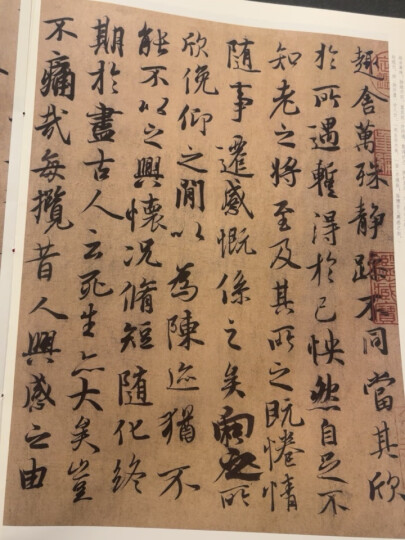 趣舍萬殊静躁不同當其欣
於所遇暫得於己怏然自足不
知老之將至及其所之既惓情
隨事遷感慨係之矣向之所
欣俛仰之閒以為陳迹猶不
能不以之興懷况脩短隨化終
期於盡古人云死生亦大矣豈
不痛哉每攬昔人興感之由